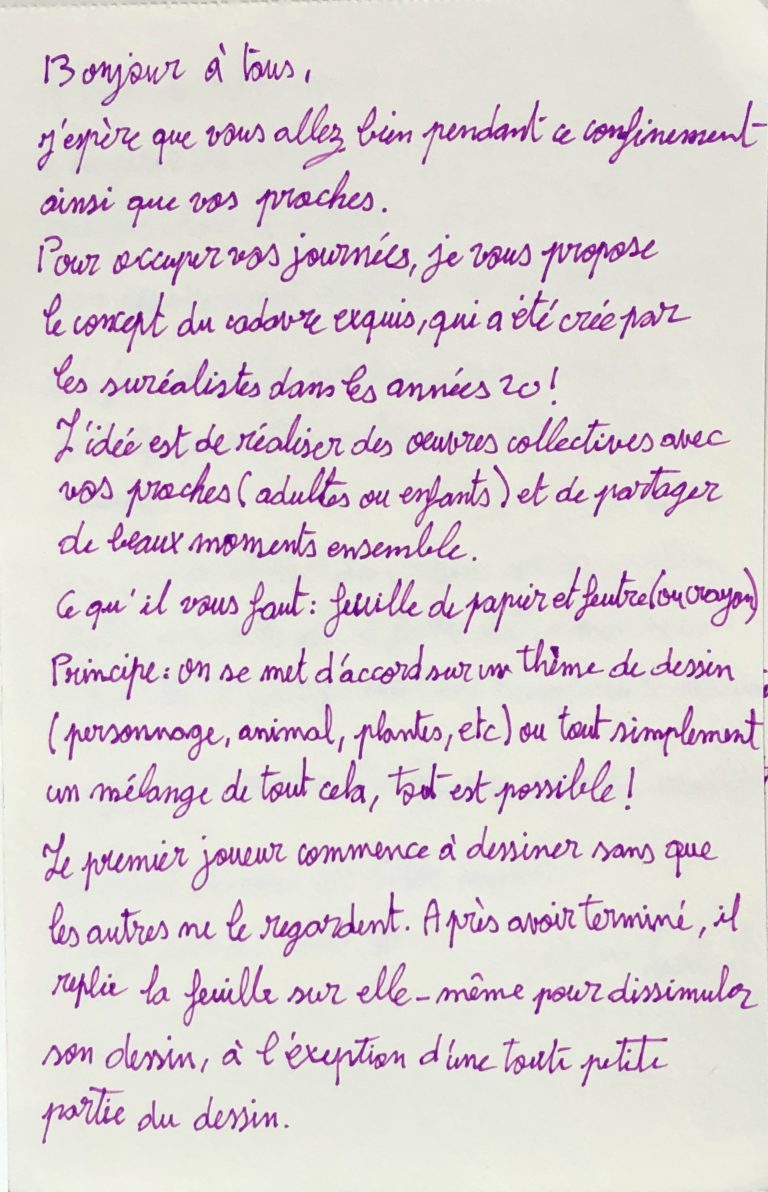 Bonjour à tous,
j'espère que vous allez bien pendant ce confinement
ainsi que vos proches.
Pour occuper vos journées, je vous propose
le concept du cadavre exquis, qui a été crée par
les suréalistes dans les années 20!
L'idée est de réaliser des oeuvres collectives avec
vos proches (adultes ou enfants) et de partager
de beaux moments ensemble.
Ce qu'il vous faut: feuille de papier et feutre (ou crayon)
Principe: on se met d'accord sur un thème de dessin
(personnage, animal, plantes, etc) ou tout simplement
un mélange de tout cela, tout est possible!
Le premier joueur commence à dessiner sans que
les autres ne le regardent. Après avoir terminé, il
replie la feuille sur elle-même pour dissimuler
son dessin, à l'éxeption d'une toute petite
partie du dessin.